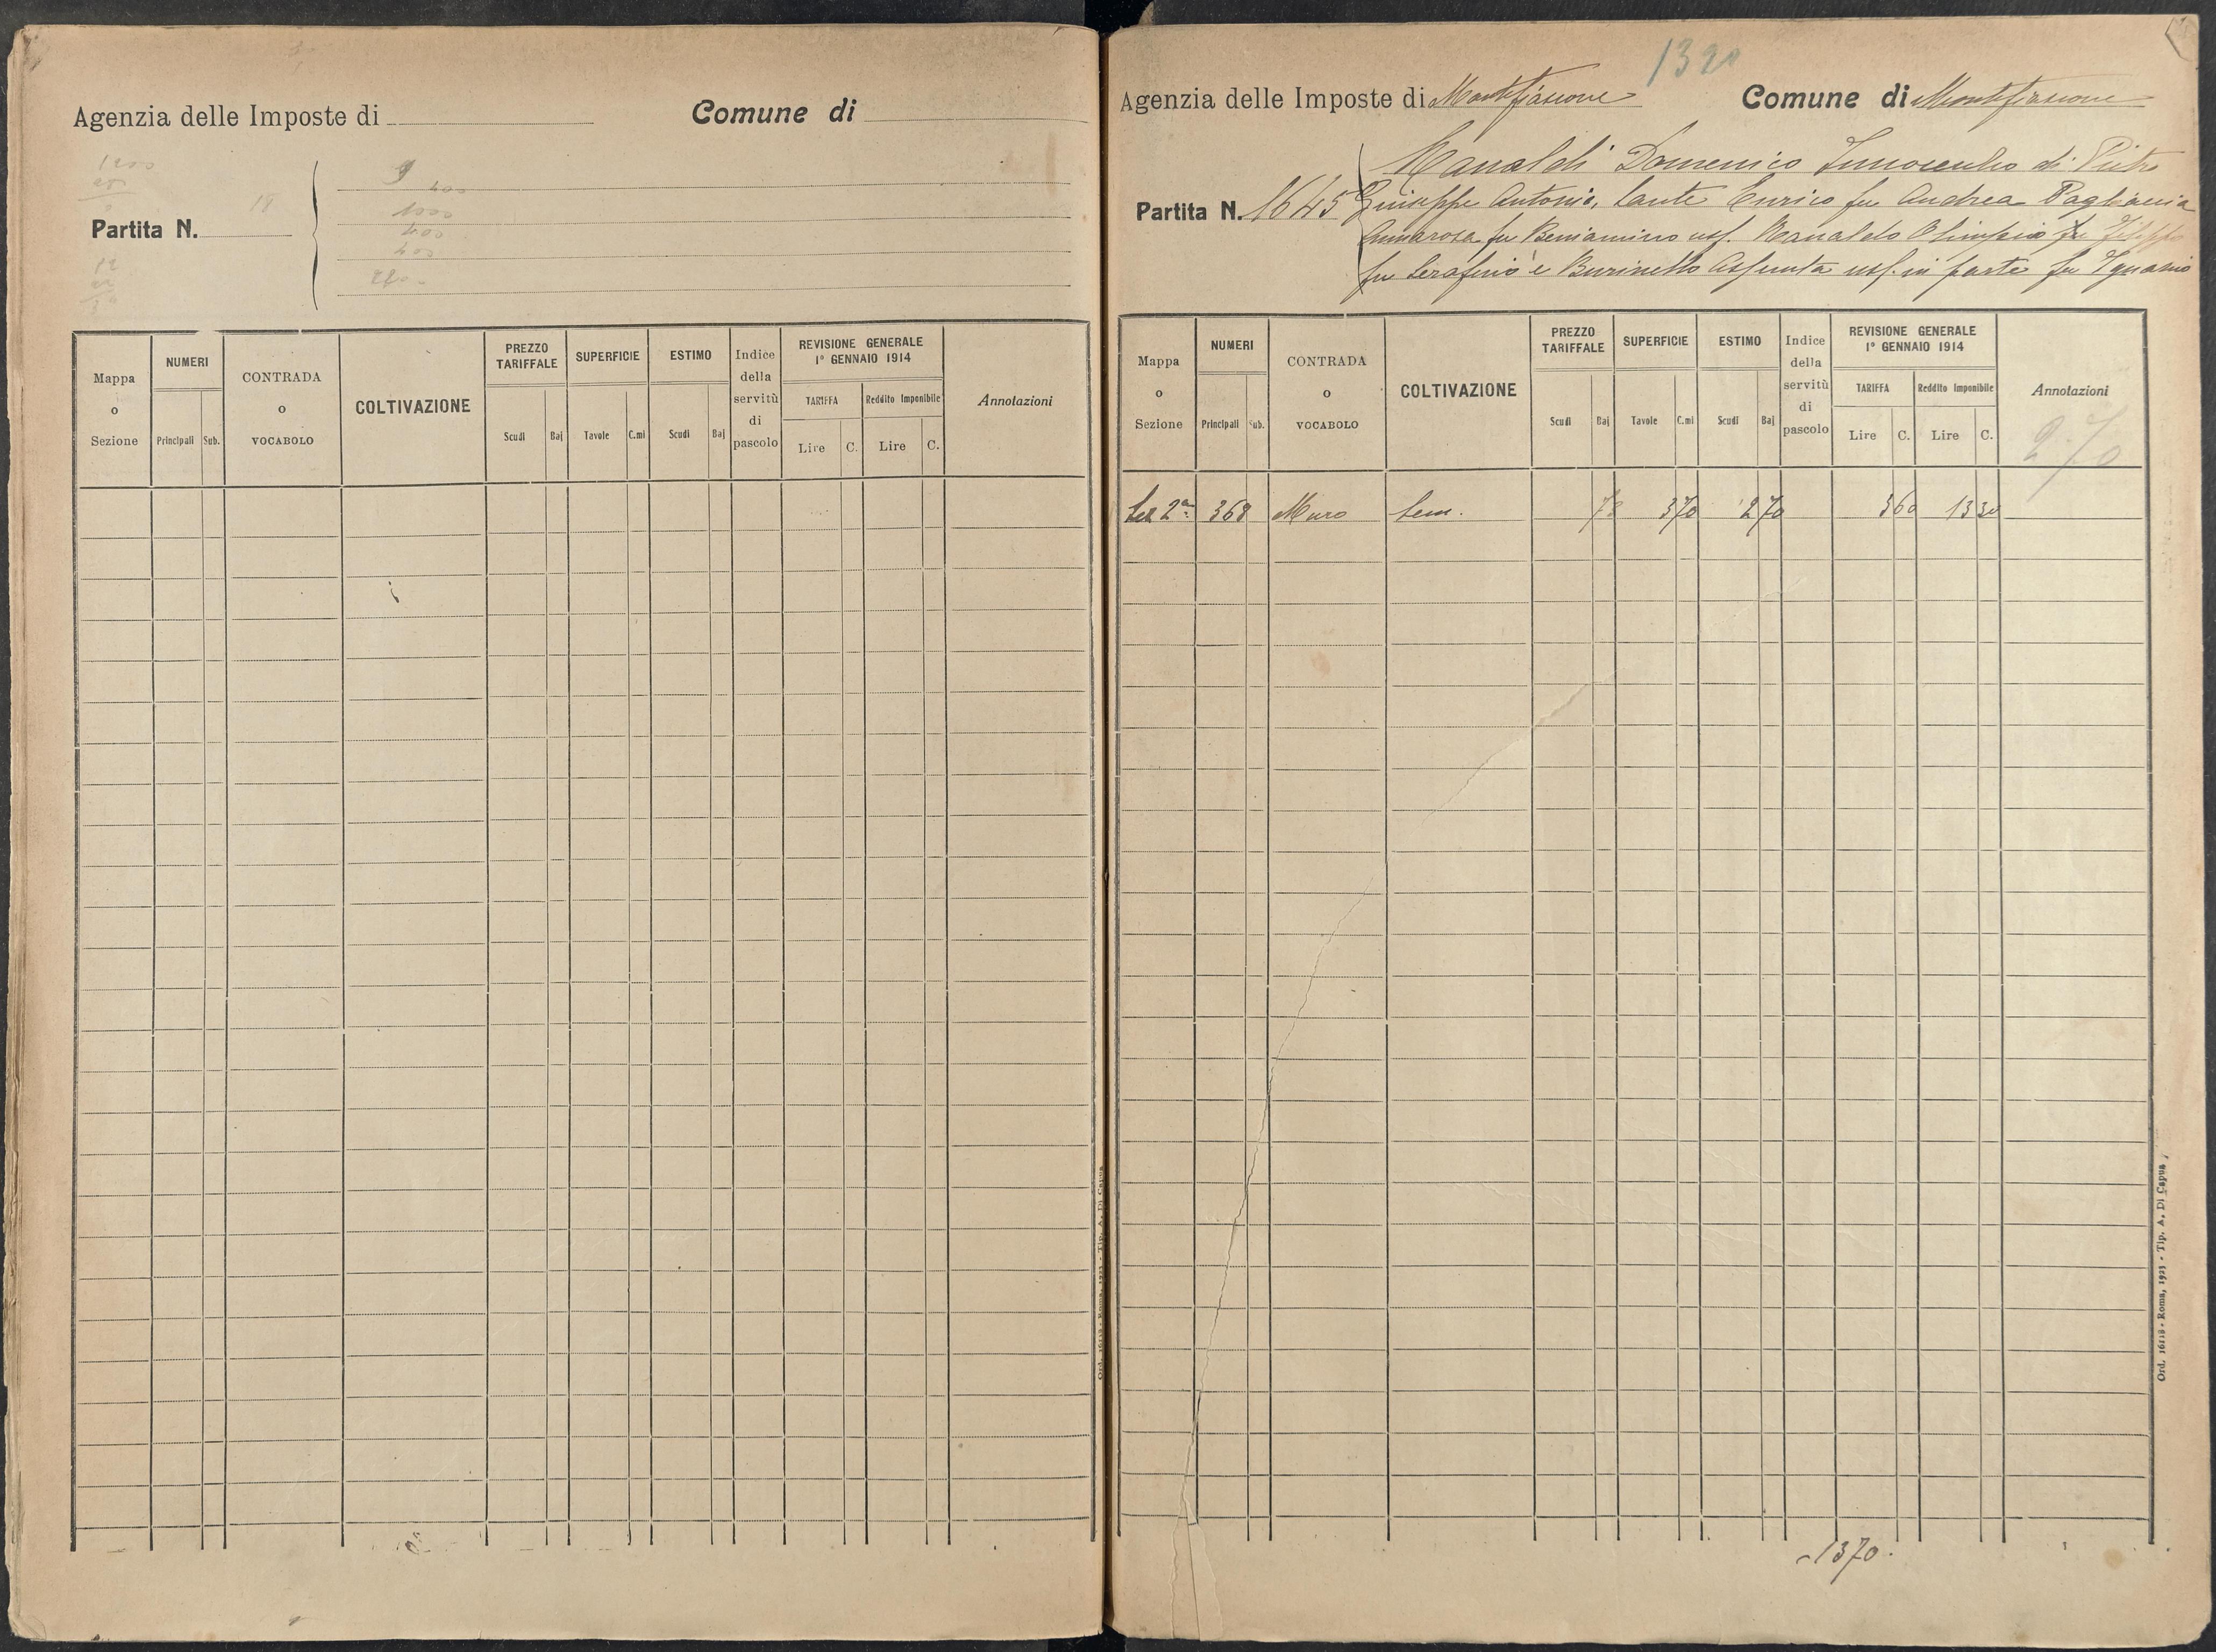 Agenzia delle Imposte di
Comune di
1200
Partita N.
400
1000
400
400
Mappa o Sezione
NUMERI
Principali
Sub.
CONTRADA o VOCABOLO
COLTIVAZIONE
PREZZO TARIFFALE
Scudi
Baj
SUPERFICIE
Tavole
C.mi
ESTIMO
Scudi
Baj
Indice della servitù di pascolo
REVISIONE GENERALE
1° GENNAIO 1914
TARIFFA
Reddito Imponibile
Lire
C.
Lire
C.
Annotazioni
Ord. 16118 - Roma, 1923 - Tip. A. Di Capua
Agenzia delle Imposte di Montefiascone
Comune di Montefiascone
Partita N. 1645
Manaldi Domenico Innocenzo di Pietro
Giuseppe Antonio, Sante Enrico fu Andrea Pagliaccia
Annarosa fu Beniamino usf. Manaldo Olimpio fu Filippo
fu Serafino e Burinello Assunta usf. in parte fu Ignazio
Mappa o Sezione
NUMERI
Principali
Sub.
CONTRADA o VOCABOLO
COLTIVAZIONE
PREZZO TARIFFALE
Scudi
Baj
SUPERFICIE
Tavole
C.mi
ESTIMO
Scudi
Baj
Indice della servitù di pascolo
REVISIONE GENERALE
1° GENNAIO 1914
TARIFFA
Reddito Imponibile
Lire
C.
Lire
C.
Annotazioni
2 70
Sez 2a 368 Muro Sem. 73 3 70 2 70 3 60 13 30
1370.
Ord. 16118 - Roma, 1923 - Tip. A. Di Capua